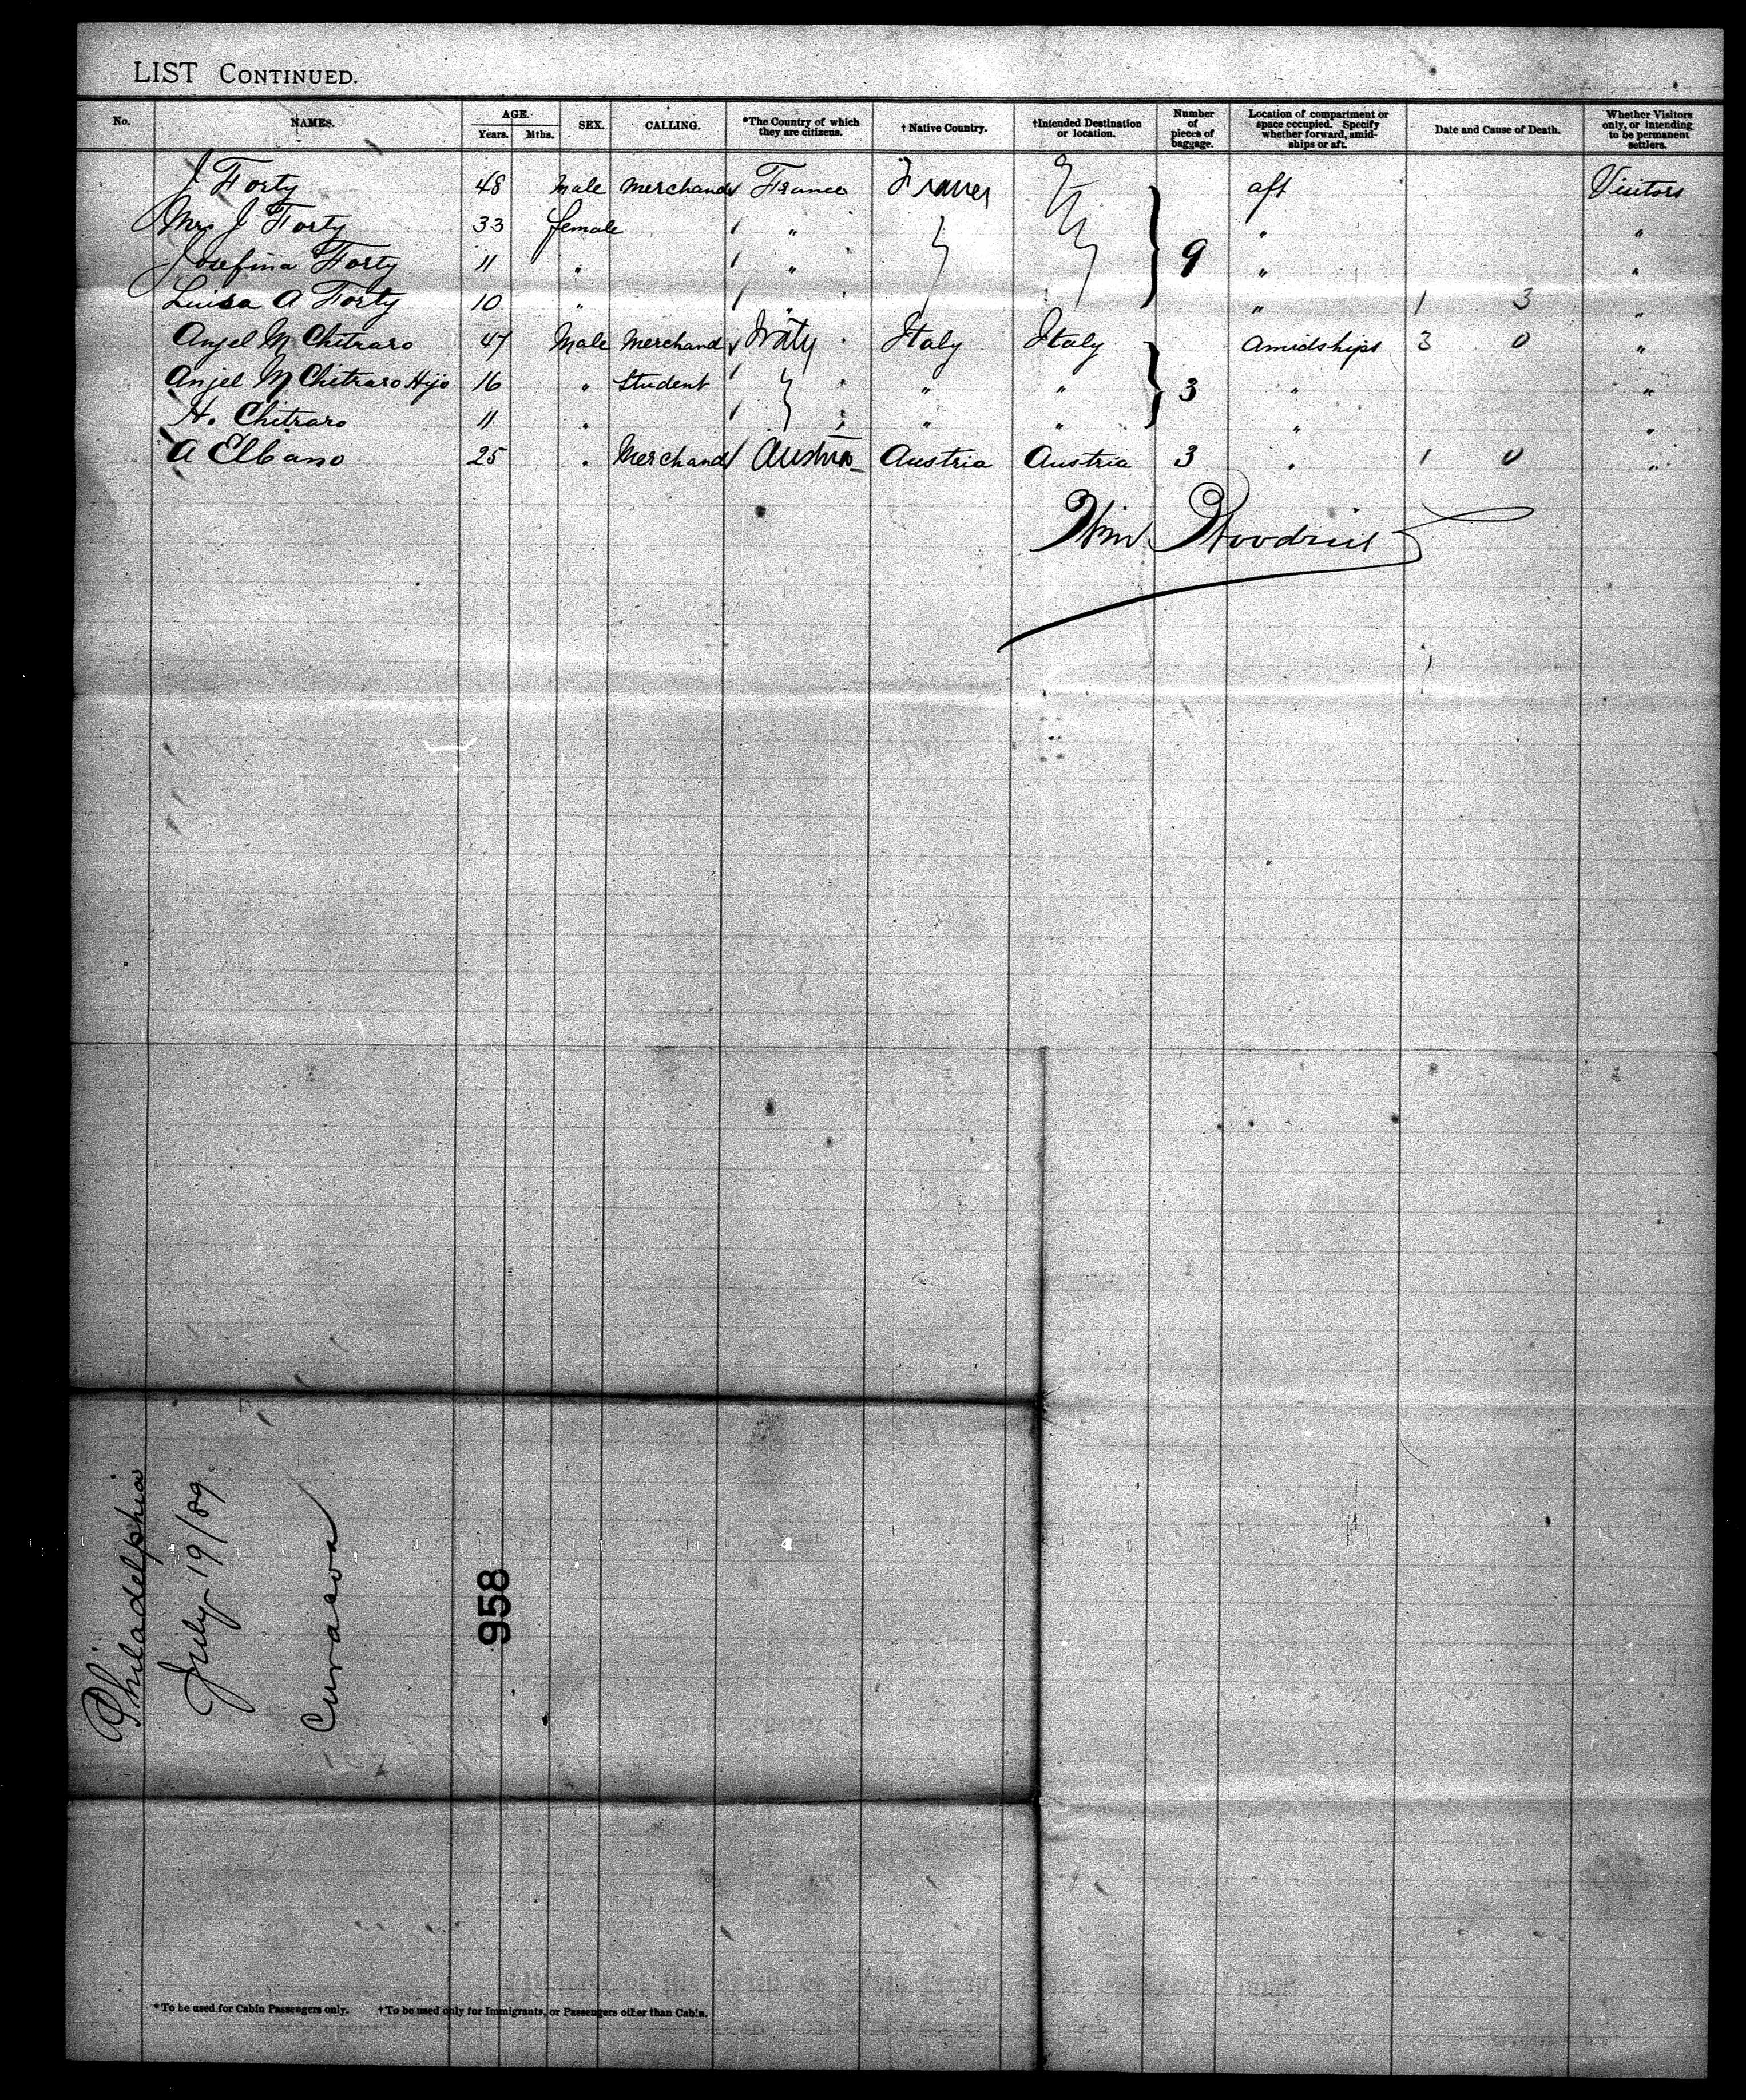 LIST CONTINUED.
No. NAMES. AGE. Years. Mths. SEX. CALLING. *The Country of which they are citizens. †Native Country. †Intended Destination or location. Number of pieces of baggage. Location of compartment or space occupied. Specify whether forward, amidships or aft. Date and Cause of Death. Whether Visitors only, or intending to be permanent settlers.
J Forty 48 Male Merchand France France aft Visitors
Mrs J Forty 33 female " " "
Josefina Forty 11 " " 9 " "
Luisa A Forty 10 " " " 1 3 "
Anjel M Chitraro 47 Male Merchand Italy Italy Amidships 3 0 "
Anjel M Chitraro Hijo 16 " Student " " 3 " "
H. Chitraro 11 " " " " "
A Elbano 25 " Merchand Austria Austria Austria 3 " 1 0 "
Wm
Philadelphia
July 19/89
Curacoa
958
*To be used for Cabin Passengers only. †To be used only for Immigrants, or Passengers other than Cabin.